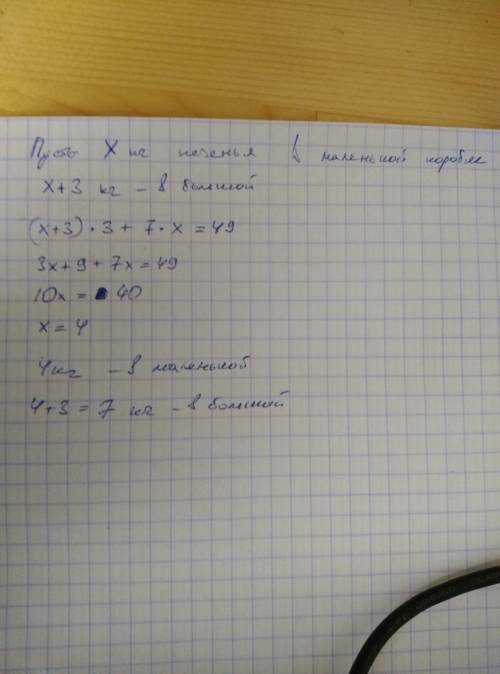 Пусть X кг печенья в маленькой коробке
X+3 кг - в большой
(x+3)·3 + 7·x = 49
3x+9+7x=49
10x = 40
x = 4
4кг - в маленькой
4+3 = 7 кг - в большой